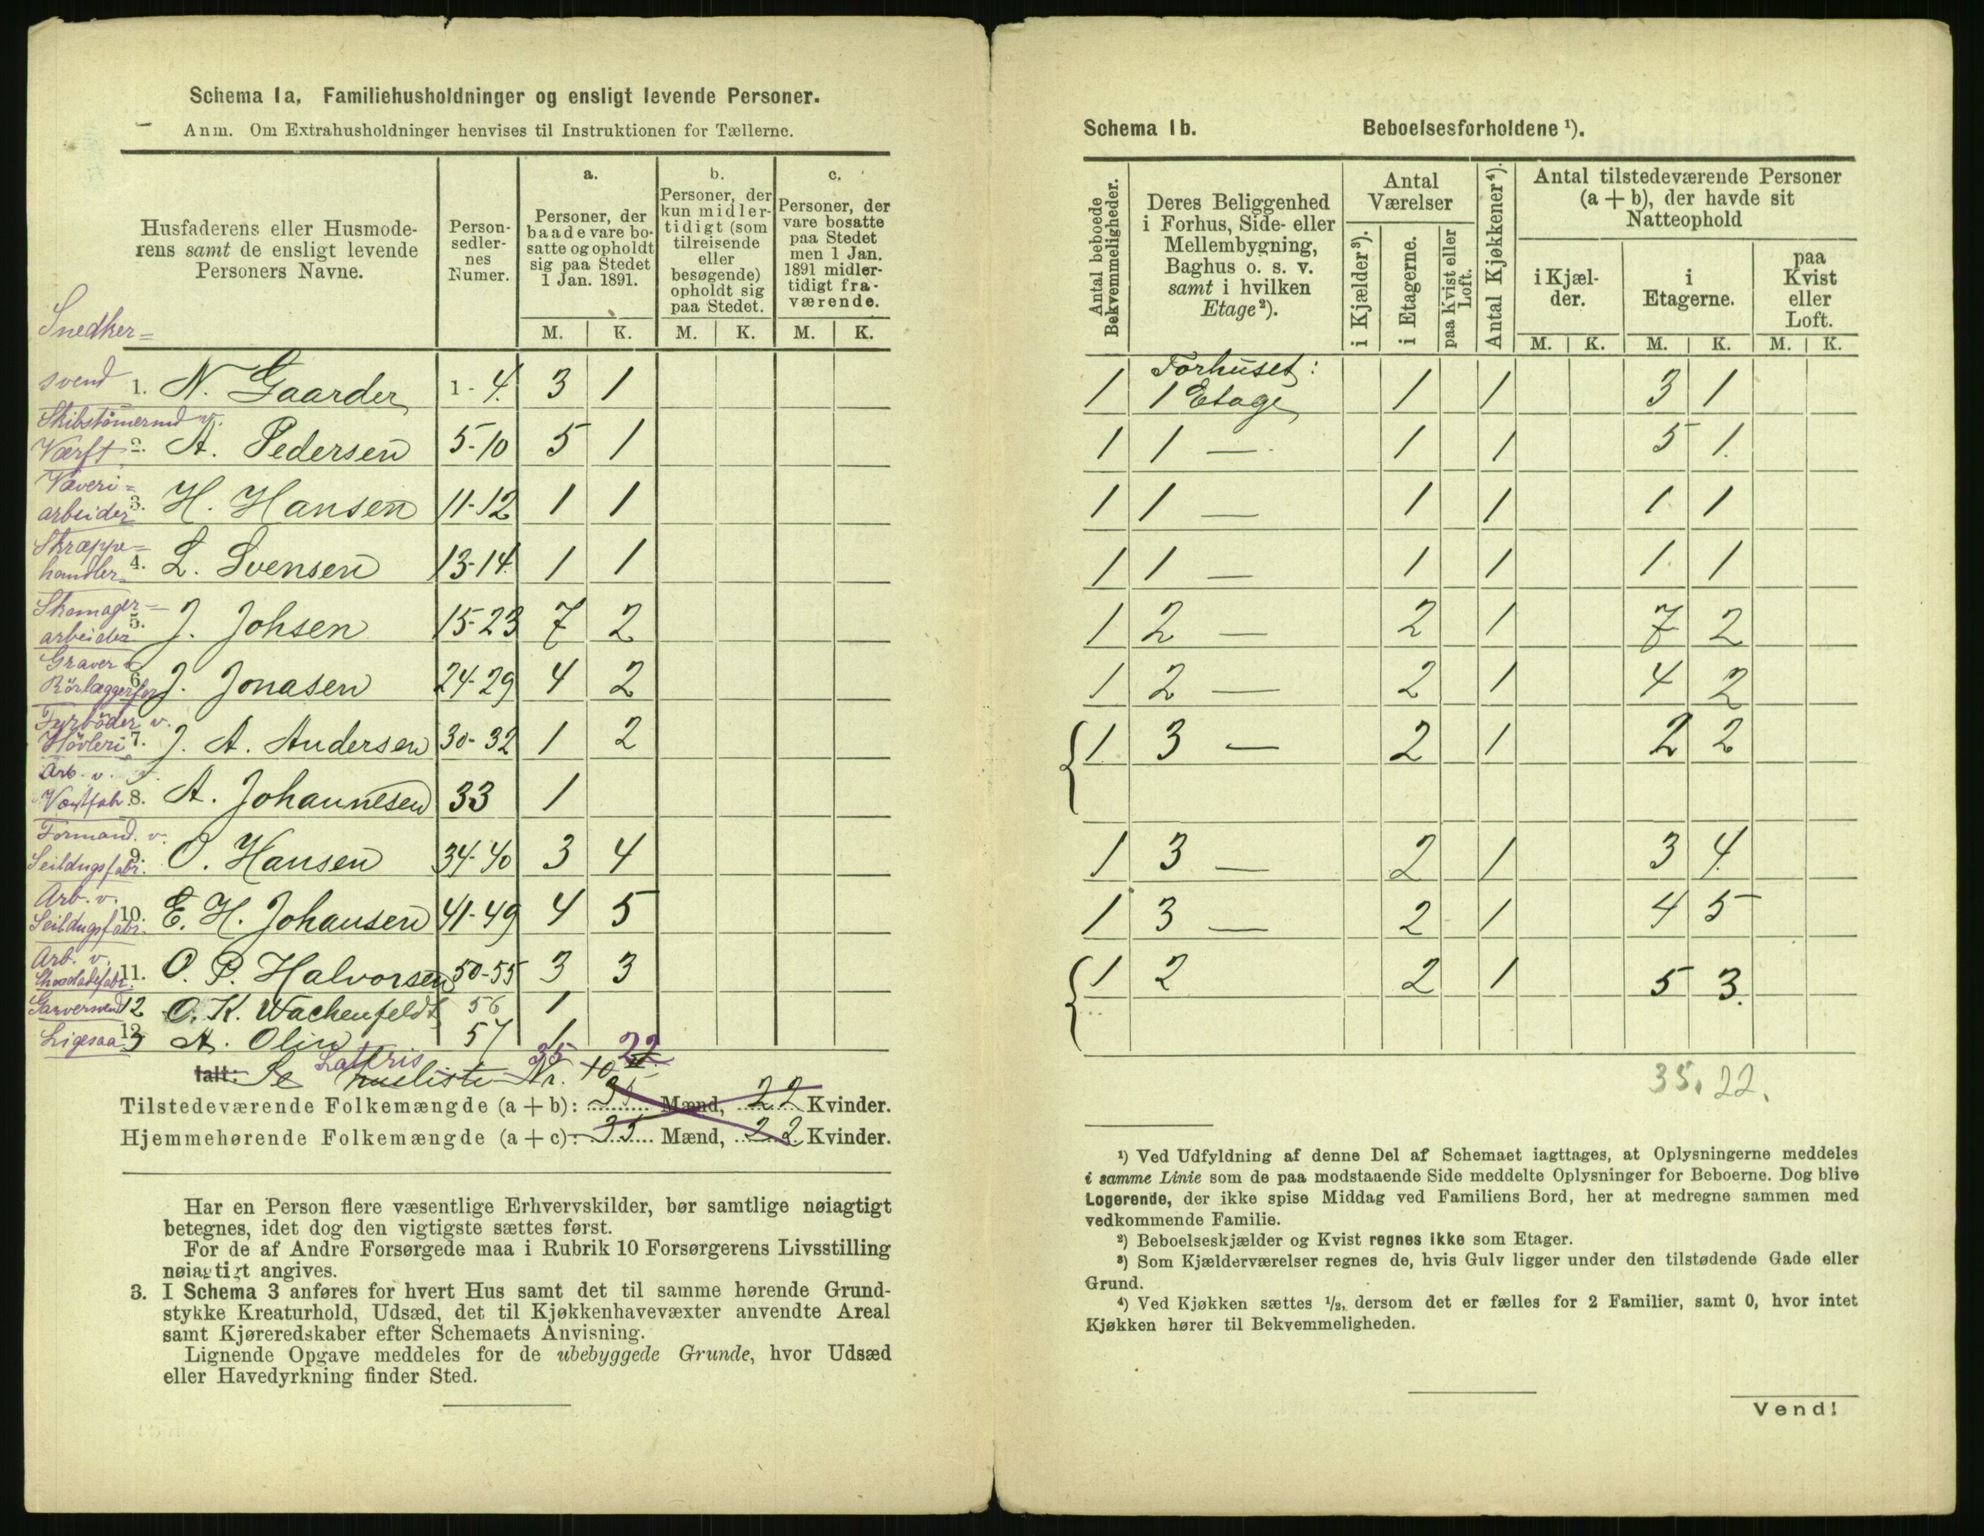 Schema 1a. Familiehusholdninger og ensligt levende Personer.
Anm. Om Extrahusholdninger henvises til Instruktionen for Tællerne.
Husfaderens eller Husmoderens samt de ensligt levende Personers Navne.
Person-sedler-nes Numer.
a. Personer, der baade vare bosatte og opholdt sig paa Stedet 1 Jan. 1891.
b. Personer, der kun midlertidigt (som tilreisende eller besøgende) opholdt sig paa Stedet.
c. Personer, der vare bosatte paa Stedet men 1 Jan. 1891 midlertidigt fraværende.
M. K. M. K. M. K.
Snedker=
svend 1. N. Gaarder 1-4. 3 1
Skibstömermd v.
Værft 2. A. Pedersen 5-10 5 1
Væveri=
arbeider 3. H. Hansen 11-12 1 1
Skræppe=
handler 4. L. Svensen 13-14. 1 1
Skomager=
arbeider 5. J. Johsen 15-23 7 2
Graver &
Rörlægger 6. J. Jonasen 24-29 4 2
Fyrböder v.
Hövleri 7. J. A. Andersen 30-32 1 2
Arb. v.
8. A. Johannesen 33 1
Formand v.
Seildugsfabr. 9. O. Hansen 34-40 3 4
Arb. v.
Seildugsfabr. 10. E. H. Johansen 41-49 4 5
Arb. v.
11. O. P. Halvorsen 50-55 3 3
Garversvend 12 O. K. Wachenfeldt 56 1
Ligesaa 13 A. Olin 57 1
35 22
Ialt: Se Nr. 10
Tilstedeværende Folkemængde (a + b): 35 Mænd, 22 Kvinder.
Hjemmehørende Folkemængde (a + c): 35 Mænd, 22 Kvinder.
Har en Person flere væsentlige Erhvervskilder, bør samtlige nøiagtigt
betegnes, idet dog den vigtigste sættes først.
For de af Andre Forsørgede maa i Rubrik 10 Forsørgerens Livsstilling
nøiagtigt angives.
3. I Schema 3 anføres for hvert Hus samt det til samme hørende Grund-
stykke Kreaturhold, Udsæd, det til Kjøkkenhavevæxter anvendte Areal
samt Kjøreredskaber efter Schemaets Anvisning.
Lignende Opgave meddeles for de ubebyggede Grunde, hvor Udsæd
eller Havedyrkning finder Sted.
Schema 1b. Beboelsesforholdene ¹).
Antal beboede Bekvemmeligheder.
Deres Beliggenhed i Forhus, Side- eller Mellembygning, Baghus o. s. v. samt i hvilken Etage²).
Antal Værelser
i Kjælder³).
i Etagerne.
paa Kvist eller Loft.
Antal Kjøkkener⁴).
Antal tilstedeværende Personer (a + b), der havde sit Natteophold
i Kjælder.
i Etagerne.
paa Kvist eller Loft.
M. K. M. K. M. K.
Forhuset:
1 1 Etage 1 1 3 1
1 1 — 1 1 5 1
1 1 — 1 1 1 1
1 1 — 1 1 1 1
1 2 — 2 1 7 2
1 2 — 2 1 4 2
1 3 — 2 1 2 2
1 3 — 2 1 3 4
1 3 — 2 1 4 5
1 2 2 1 5 3
35. 22.
¹) Ved Udfyldning af denne Del af Schemaet iagttages, at Oplysningerne meddeles
i samme Linie som de paa modstaaende Side meddelte Oplysninger for Beboerne. Dog blive
Logerende, der ikke spise Middag ved Familiens Bord, her at medregne sammen med
vedkommende Familie.
²) Beboelseskjælder og Kvist regnes ikke som Etager.
³) Som Kjælderværelser regnes de, hvis Gulv ligger under den tilstødende Gade eller
Grund.
⁴) Ved Kjøkken sættes ½, dersom det er fælles for 2 Familier, samt 0, hvor intet
Kjøkken hører til Bekvemmeligheden.
Vend!